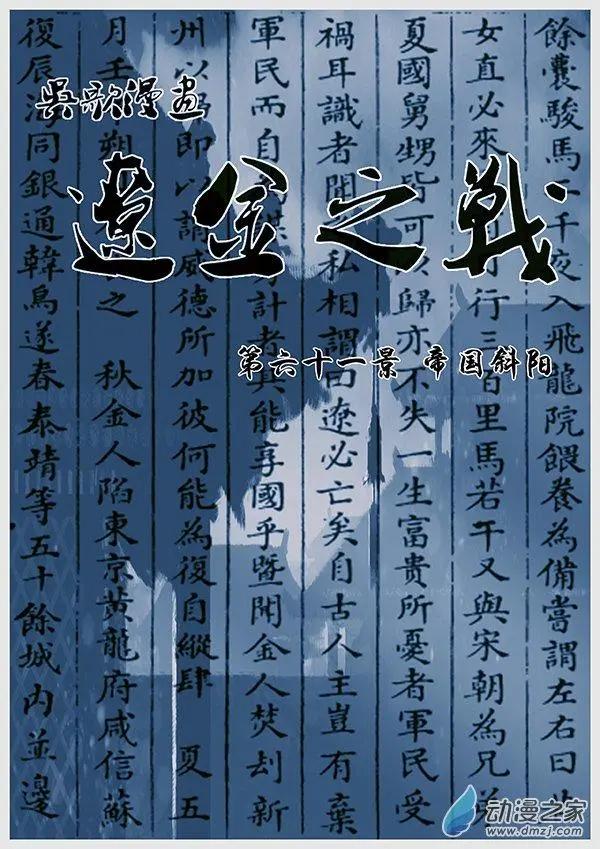 吳歌漫画
遼金之戰
第六十一景 帝国斜阳
餘囊駿馬二千夜入飛龍院餵養為備嘗謂左右曰若
女直必來 行三百里馬若干又與宋朝為兄弟
夏國舅甥皆可以歸亦不失一生富貴所憂者軍民受
禍耳識者聞 私相謂曰遼必亡矣自古人主豈有棄
軍民而自 謀身計者其能享國乎暨聞金人焚刦新
州以 即以謂威德所加彼何能為復自縱肆 夏五
月壬 朔 之 秋金人陷東京黃龍府咸信蘇
復辰海同銀通韓烏遂春泰靖等五十餘城內並邊
动漫之家
www.dmzj.com